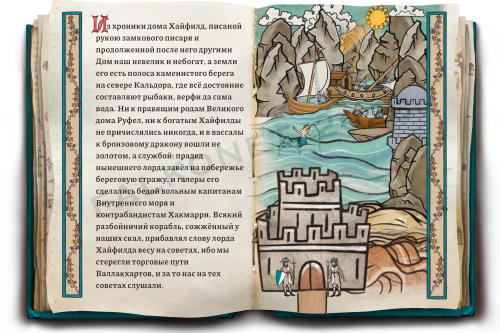 Из хроники дома Хайфилд, писаной
рукою замкового писаря и
продолженной после него другими
Дом наш невелик и небогат, а земли
его есть полоса каменистого берега
на севере Кальдора, где всё достояние
составляют рыбаки, верфи да сама
вода. Ни к правящим родам Великого
дома Руфел, ни к богатым Хайфилды
не причислялись никогда, и в вассалы
к бронзовому дракону вошли не
золотом, а службой: прадед
нынешнего лорда завёл на побережье
береговую стражу, и галеры его
сделались бедой вольным капитанам
Внутреннего моря и
контрабандистам Хакмарри. Всякий
разбойничий корабль, сожжённый у
наших скал, прибавлял слову лорда
Хайфилда весу на советах, ибо мы
стерегли торговые пути
Валлакхартов, и за то нас на тех
советах слушали.